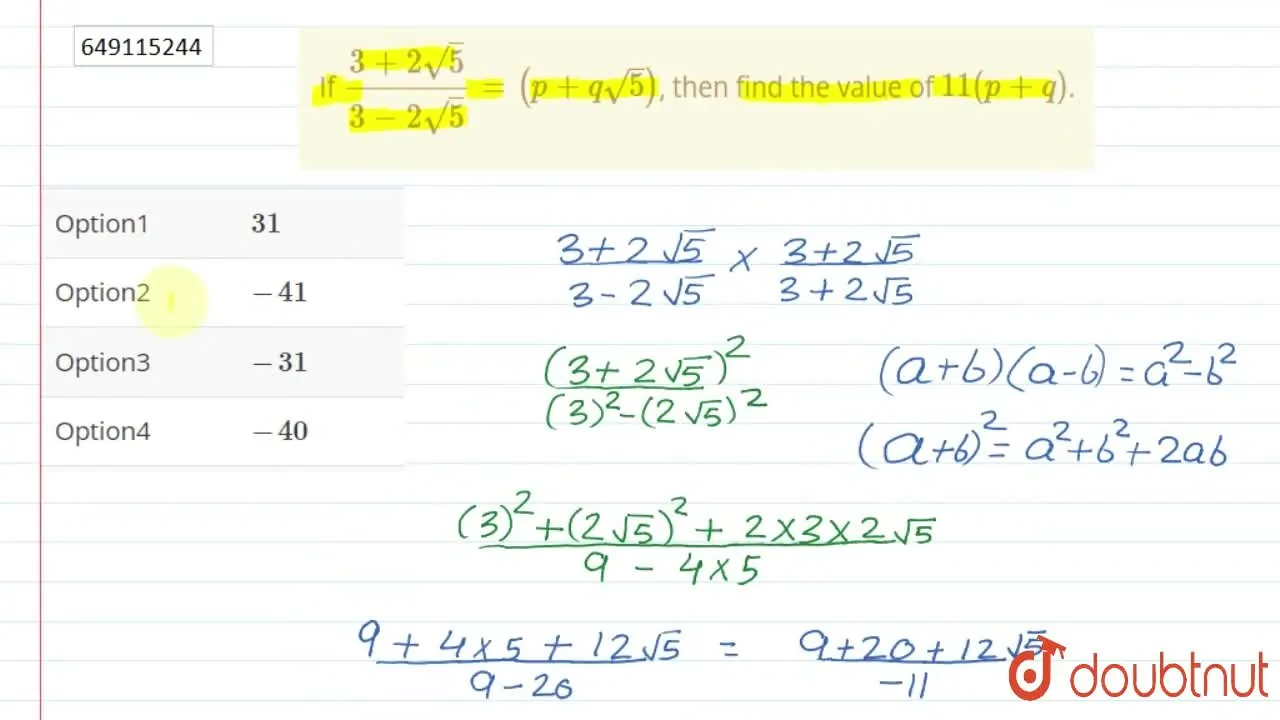 649115244
If (3 + 2√5)/(3 − 2√5) = (p + q√5), then find the value of 11(p + q).
Option1 31
Option2 −41
Option3 −31
Option4 −40
(3+2√5)/(3-2√5) × (3+2√5)/(3+2√5)
(3+2√5)²/((3)²-(2√5)²)
(a+b)(a-b)=a²-b²
(a+b)²=a²+b²+2ab
((3)²+(2√5)²+2×3×2√5)/(9-4×5)
(9+4×5+12√5)/(9-20) = (9+20+12√5)/(-11)
doubtnut